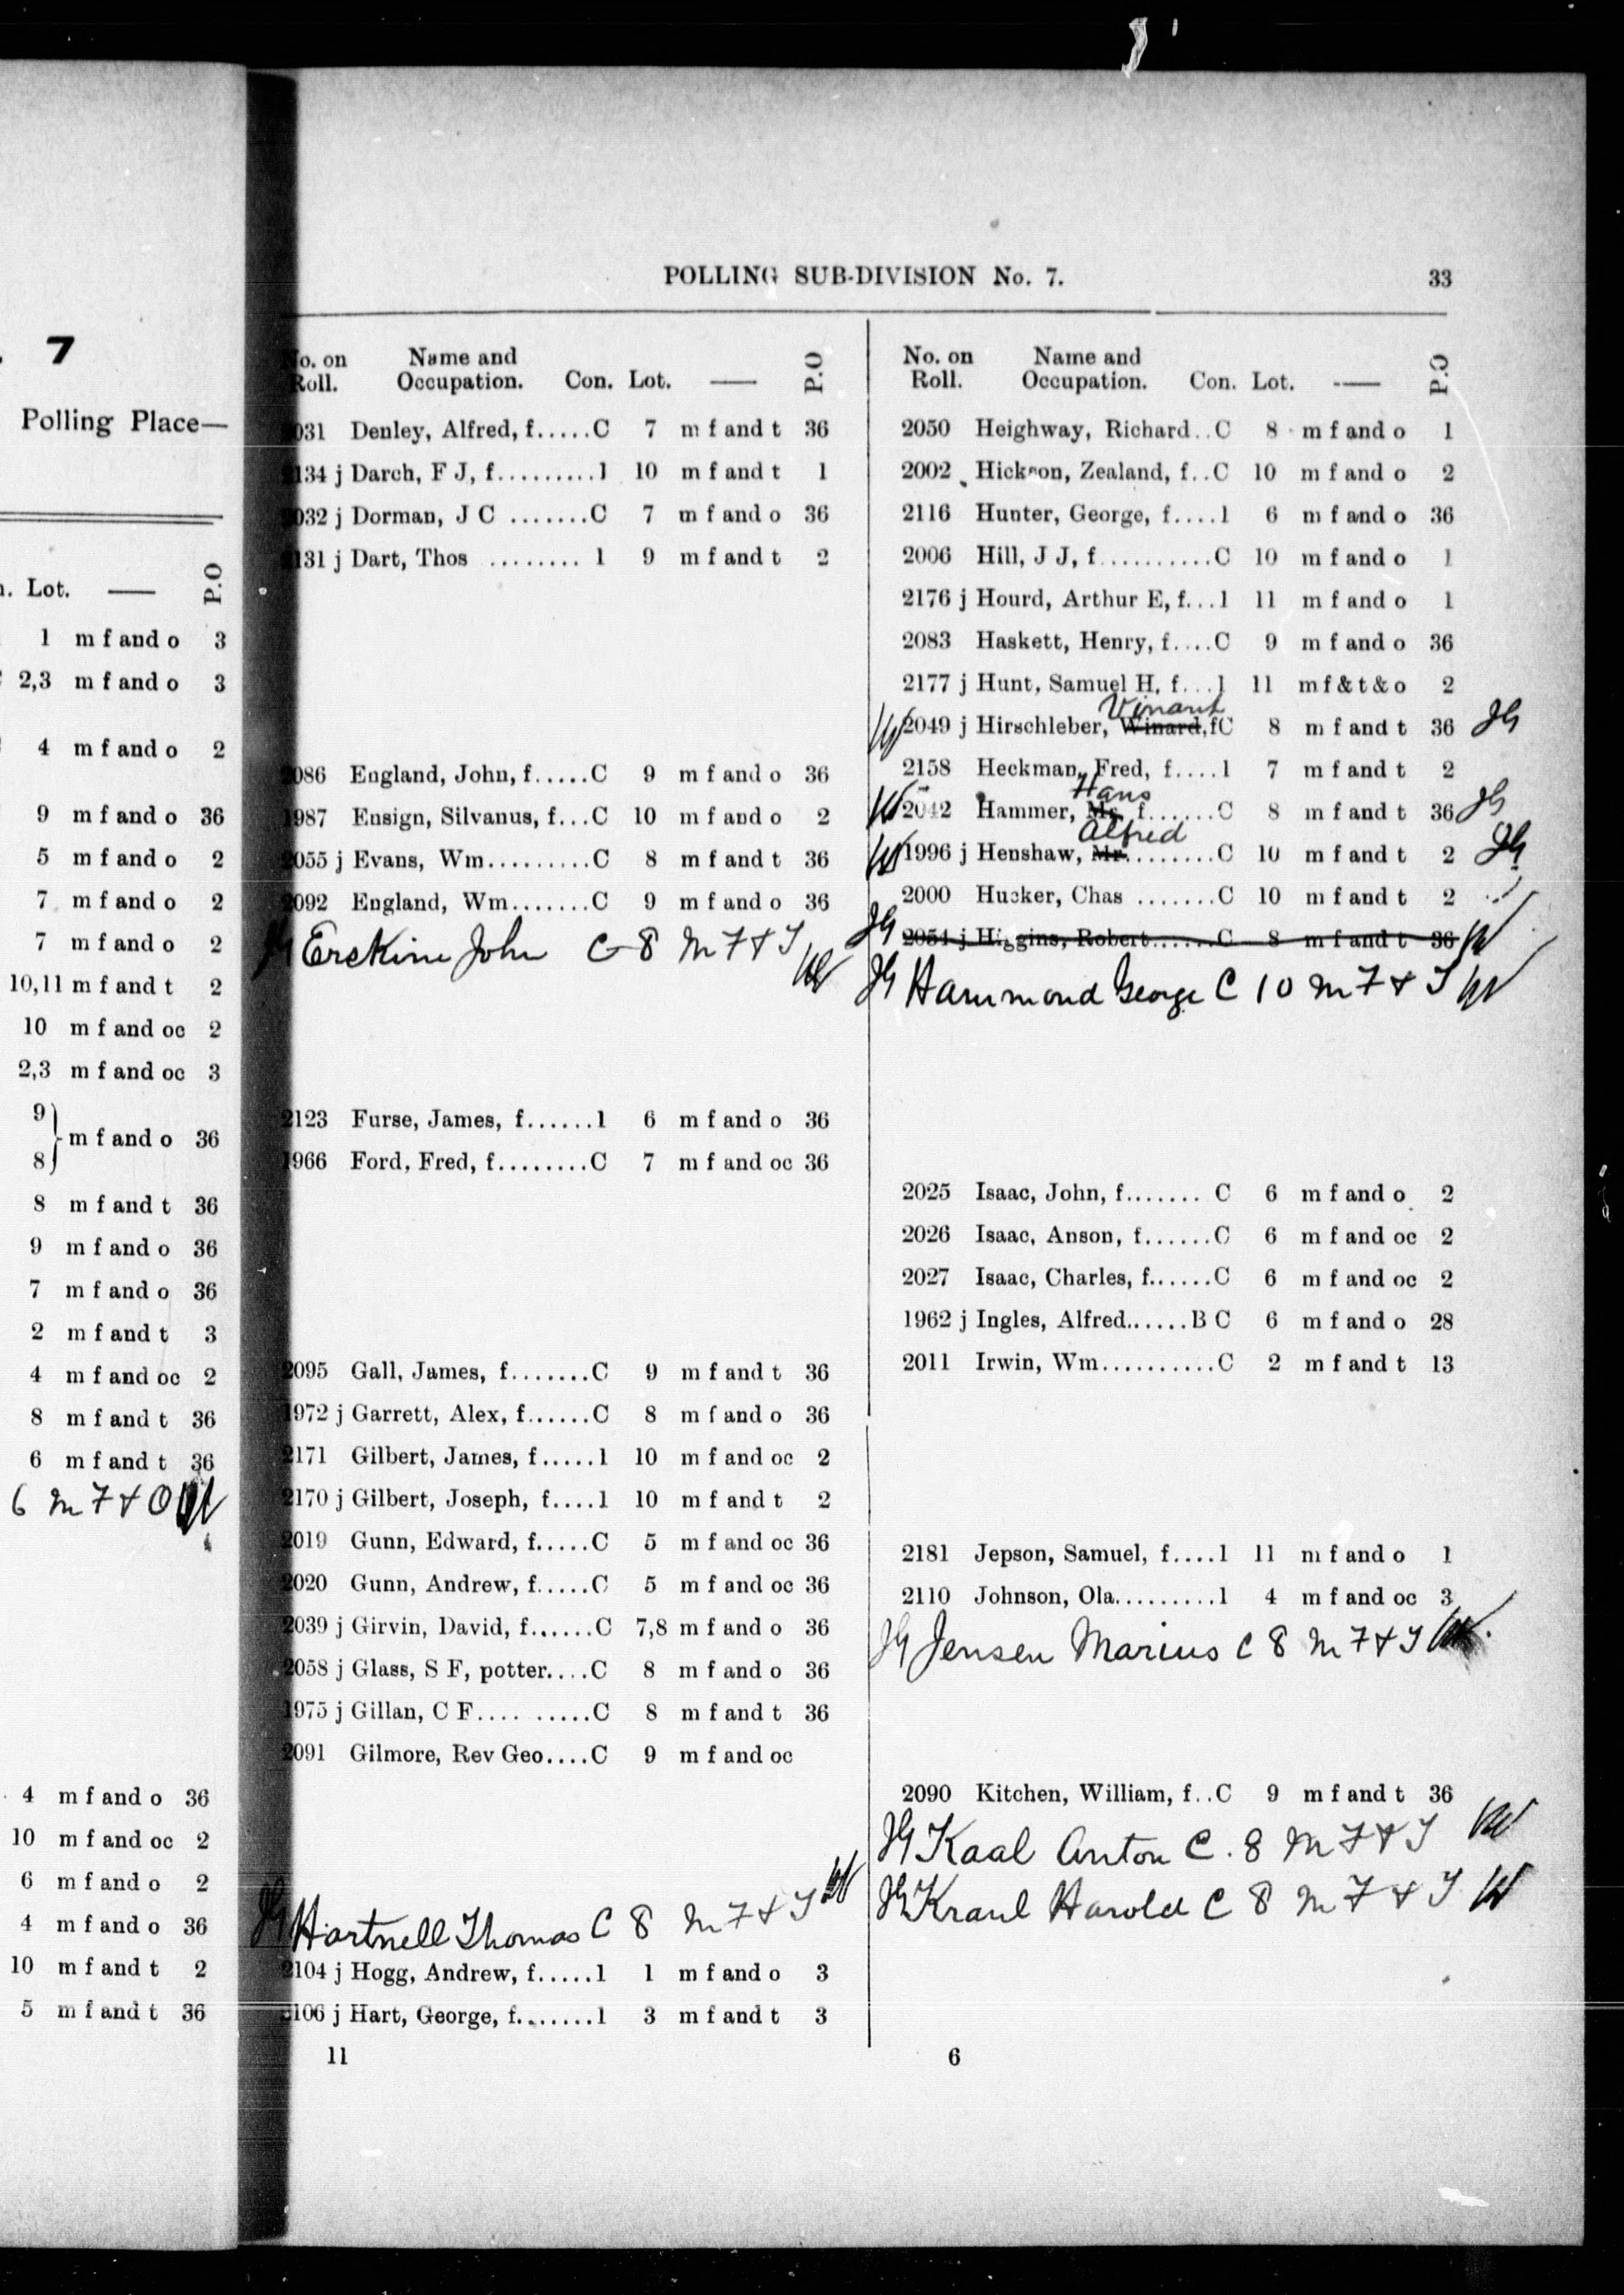 7
Polling Place—
Lot. —— P.O
1 m f and o 3
2,3 m f and o 3
4 m f and o 2
9 m f and o 36
5 m f and o 2
7 m f and o 2
7 m f and o 2
10,11 m f and t 2
10 m f and oc 2
2,3 m f and oc 3
9
} m f and o 36
8
8 m f and t 36
9 m f and o 36
7 m f and o 36
2 m f and t 3
4 m f and oc 2
8 m f and t 36
6 m f and t 36
6 M F + O W
4 m f and o 36
10 m f and oc 2
6 m f and o 2
4 m f and o 36
10 m f and t 2
5 m f and t 36
POLLING SUB-DIVISION No. 7. 33
No. on Name and
Roll. Occupation. Con. Lot. —— P.O
2031 Denley, Alfred, f.....C 7 m f and t 36
2134 j Darch, F J, f.........1 10 m f and t 1
2032 j Dorman, J C .......C 7 m f and o 36
2131 j Dart, Thos ........ 1 9 m f and t 2
2086 England, John, f.....C 9 m f and o 36
1987 Ensign, Silvanus, f...C 10 m f and o 2
2055 j Evans, Wm.........C 8 m f and t 36
2092 England, Wm.......C 9 m f and o 36
JG Erskine John C 8 M F + T W
2123 Furse, James, f......1 6 m f and o 36
1966 Ford, Fred, f........C 7 m f and oc 36
2095 Gall, James, f.......C 9 m f and t 36
1972 j Garrett, Alex, f......C 8 m f and o 36
2171 Gilbert, James, f.....1 10 m f and oc 2
2170 j Gilbert, Joseph, f....1 10 m f and t 2
2019 Gunn, Edward, f.....C 5 m f and oc 36
2020 Gunn, Andrew, f.....C 5 m f and oc 36
2039 j Girvin, David, f......C 7,8 m f and o 36
2058 j Glass, S F, potter....C 8 m f and o 36
1975 j Gillan, C F.... .....C 8 m f and t 36
2091 Gilmore, Rev Geo....C 9 m f and oc
JG Hartnell Thomas C 8 M F + T W
2104 j Hogg, Andrew, f.....1 1 m f and o 3
2106 j Hart, George, f.......1 3 m f and t 3
11
No. on Name and
Roll. Occupation. Con. Lot. —— P.O
2050 Heighway, Richard..C 8 m f and o 1
2002 Hickson, Zealand, f..C 10 m f and o 2
2116 Hunter, George, f....1 6 m f and o 36
2006 Hill, J J, f..........C 10 m f and o 1
2176 j Hourd, Arthur E, f...1 11 m f and o 1
2083 Haskett, Henry, f....C 9 m f and o 36
2177 j Hunt, Samuel H, f...1 11 m f & t & o 2
Vinant
W 2049 j Hirschleber, Winard, f C 8 m f and t 36 JG
2158 Heckman, Fred, f....1 7 m f and t 2
Hans
W 2042 Hammer, Mr, f.......C 8 m f and t 36 JG
Alfred
W 1996 j Henshaw, Mr.........C 10 m f and t 2 JG
2000 Hucker, Chas .......C 10 m f and t 2
JG 2054 j Higgins, Robert......C 8 m f and t 36 W
JG Hammond George C 10 M F + T W
2025 Isaac, John, f....... C 6 m f and o 2
2026 Isaac, Anson, f......C 6 m f and oc 2
2027 Isaac, Charles, f......C 6 m f and oc 2
1962 j Ingles, Alfred......B C 6 m f and o 28
2011 Irwin, Wm..........C 2 m f and t 13
2181 Jepson, Samuel, f....1 11 m f and o 1
2110 Johnson, Ola.........1 4 m f and oc 3
JG Jensen Marius C 8 M F + T W
2090 Kitchen, William, f..C 9 m f and t 36
JG Kaal Anton C. 8 M F + T W
JG Kraul Harold C 8 M F + T W
6